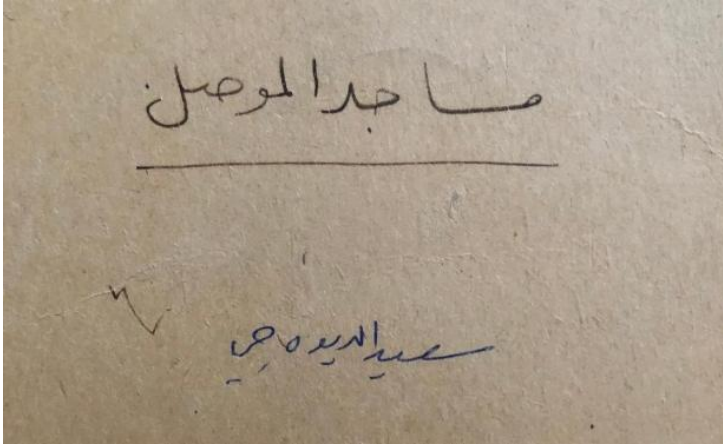 مساجد الموصل
سعيد الديوه جي